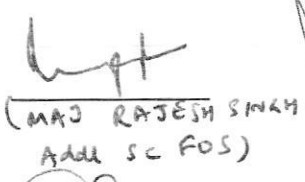 (MAJ RAJESH SINGH
Addl SC FOS)